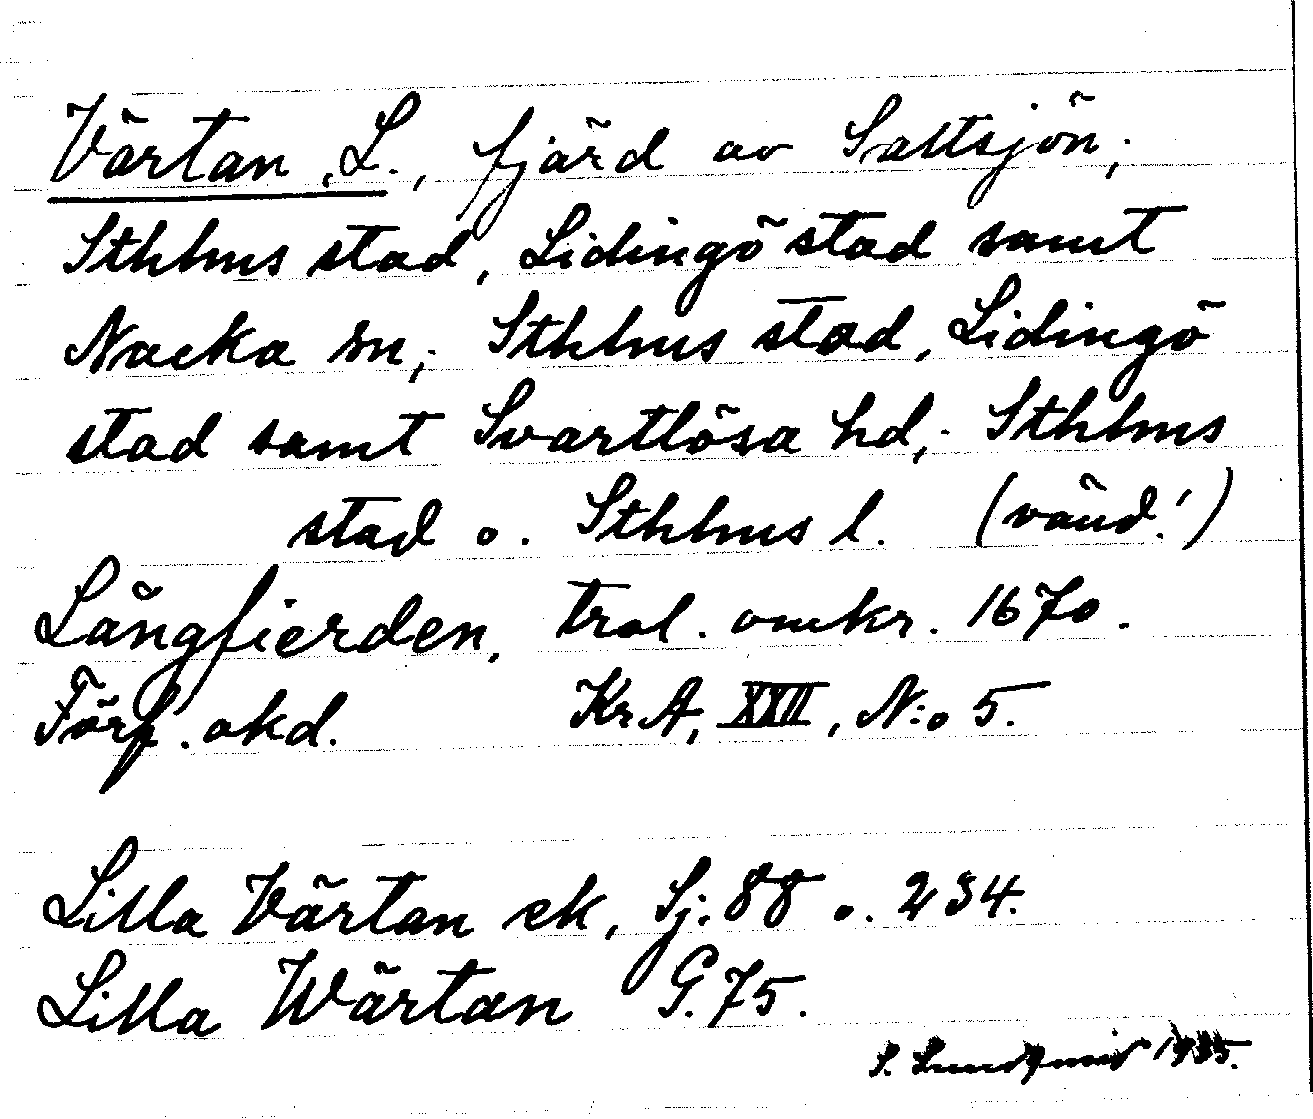 Värtan, L., fjärd av Saltsjön;
Sthlms stad, Lidingö stad samt
Nacka sn; Sthlms stad, Lidingö
stad samt Svartlösa hd; Sthlms
stad o. Sthlms l. (vänd!)
Långfierden, trol. omkr. 1670.
Förf. okd. KrA, XXII, N:o 5.
Lilla Värtan ek, Sj: 88 o. 234.
Lilla Wärtan G. 75.
S. Lundqvist 1935.